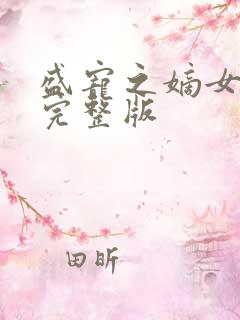 盛宠之嫡女
完整版
田昕